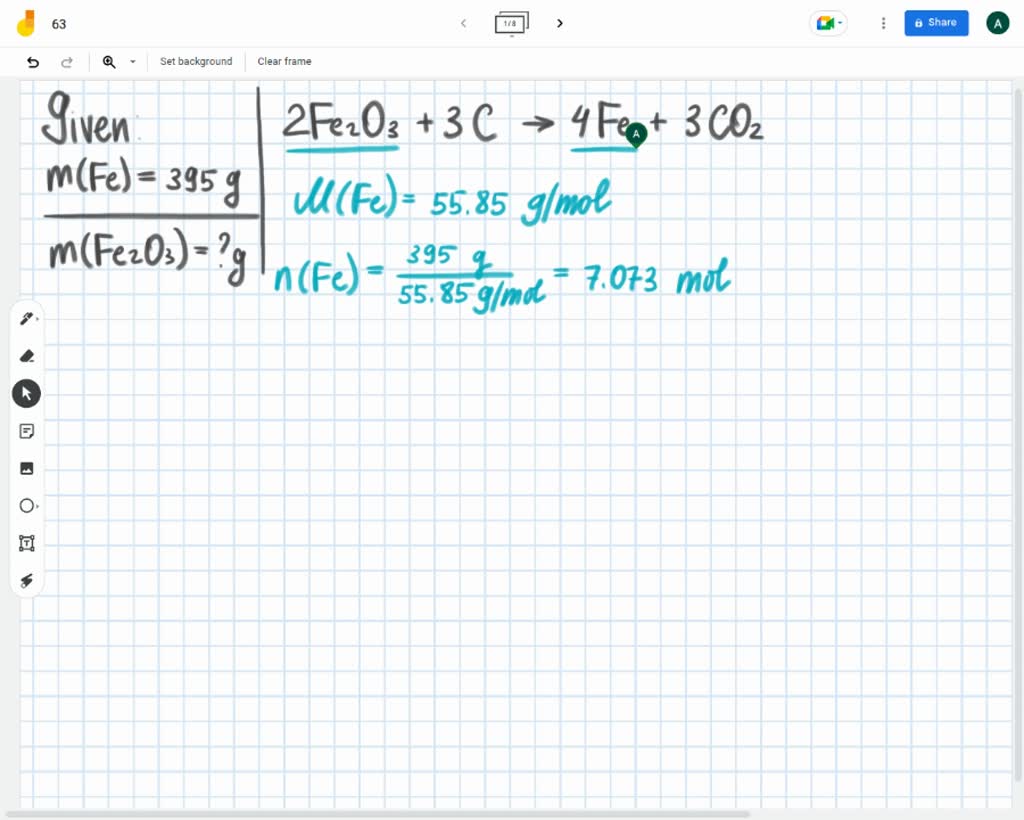 63
1/8
Share
A
Set background
Clear frame
Given:
m(Fe) = 395 g
m(Fe₂O₃) = ? g
2Fe₂O₃ + 3C → 4Fe + 3CO₂
A
M(Fe) = 55.85 g/mol
n(Fe) = 395 g / 55.85 g/mol = 7.073 mol
T